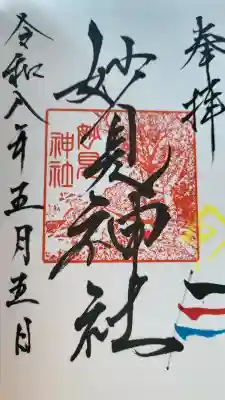 奉拝
妙見神社
妙見
神社
令和八年五月五日